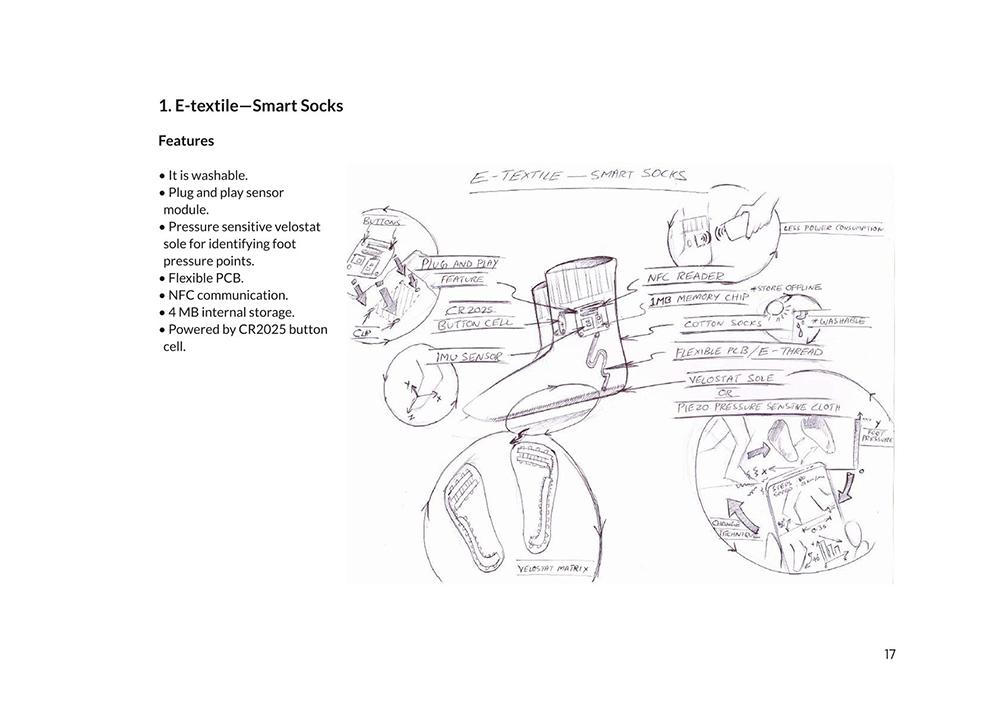 1. E-textile—Smart Socks
Features
• It is washable.
• Plug and play sensor
module.
• Pressure sensitive velostat
sole for identifying foot
pressure points.
• Flexible PCB.
• NFC communication.
• 4 MB internal storage.
• Powered by CR2025 button
cell.
E-TEXTILE — SMART SOCKS
BUTTONS
LESS POWER CONSUMPTION
PLUG AND PLAY
FEATURE
NFC READER
1MB MEMORY CHIP
*STORE OFFLINE
CR2025
BUTTON CELL
CLIP
COTTON SOCKS
*WASHABLE
IMU SENSOR
FLEXIBLE PCB/E-THREAD
VELOSTAT SOLE
OR
PIEZO PRESSURE SENSING CLOTH
Y
FOOT
PRESSURE
X
STEPS
SPEED
CHANGE
TECHNIQUE
VELOSTAT MATRIX
17